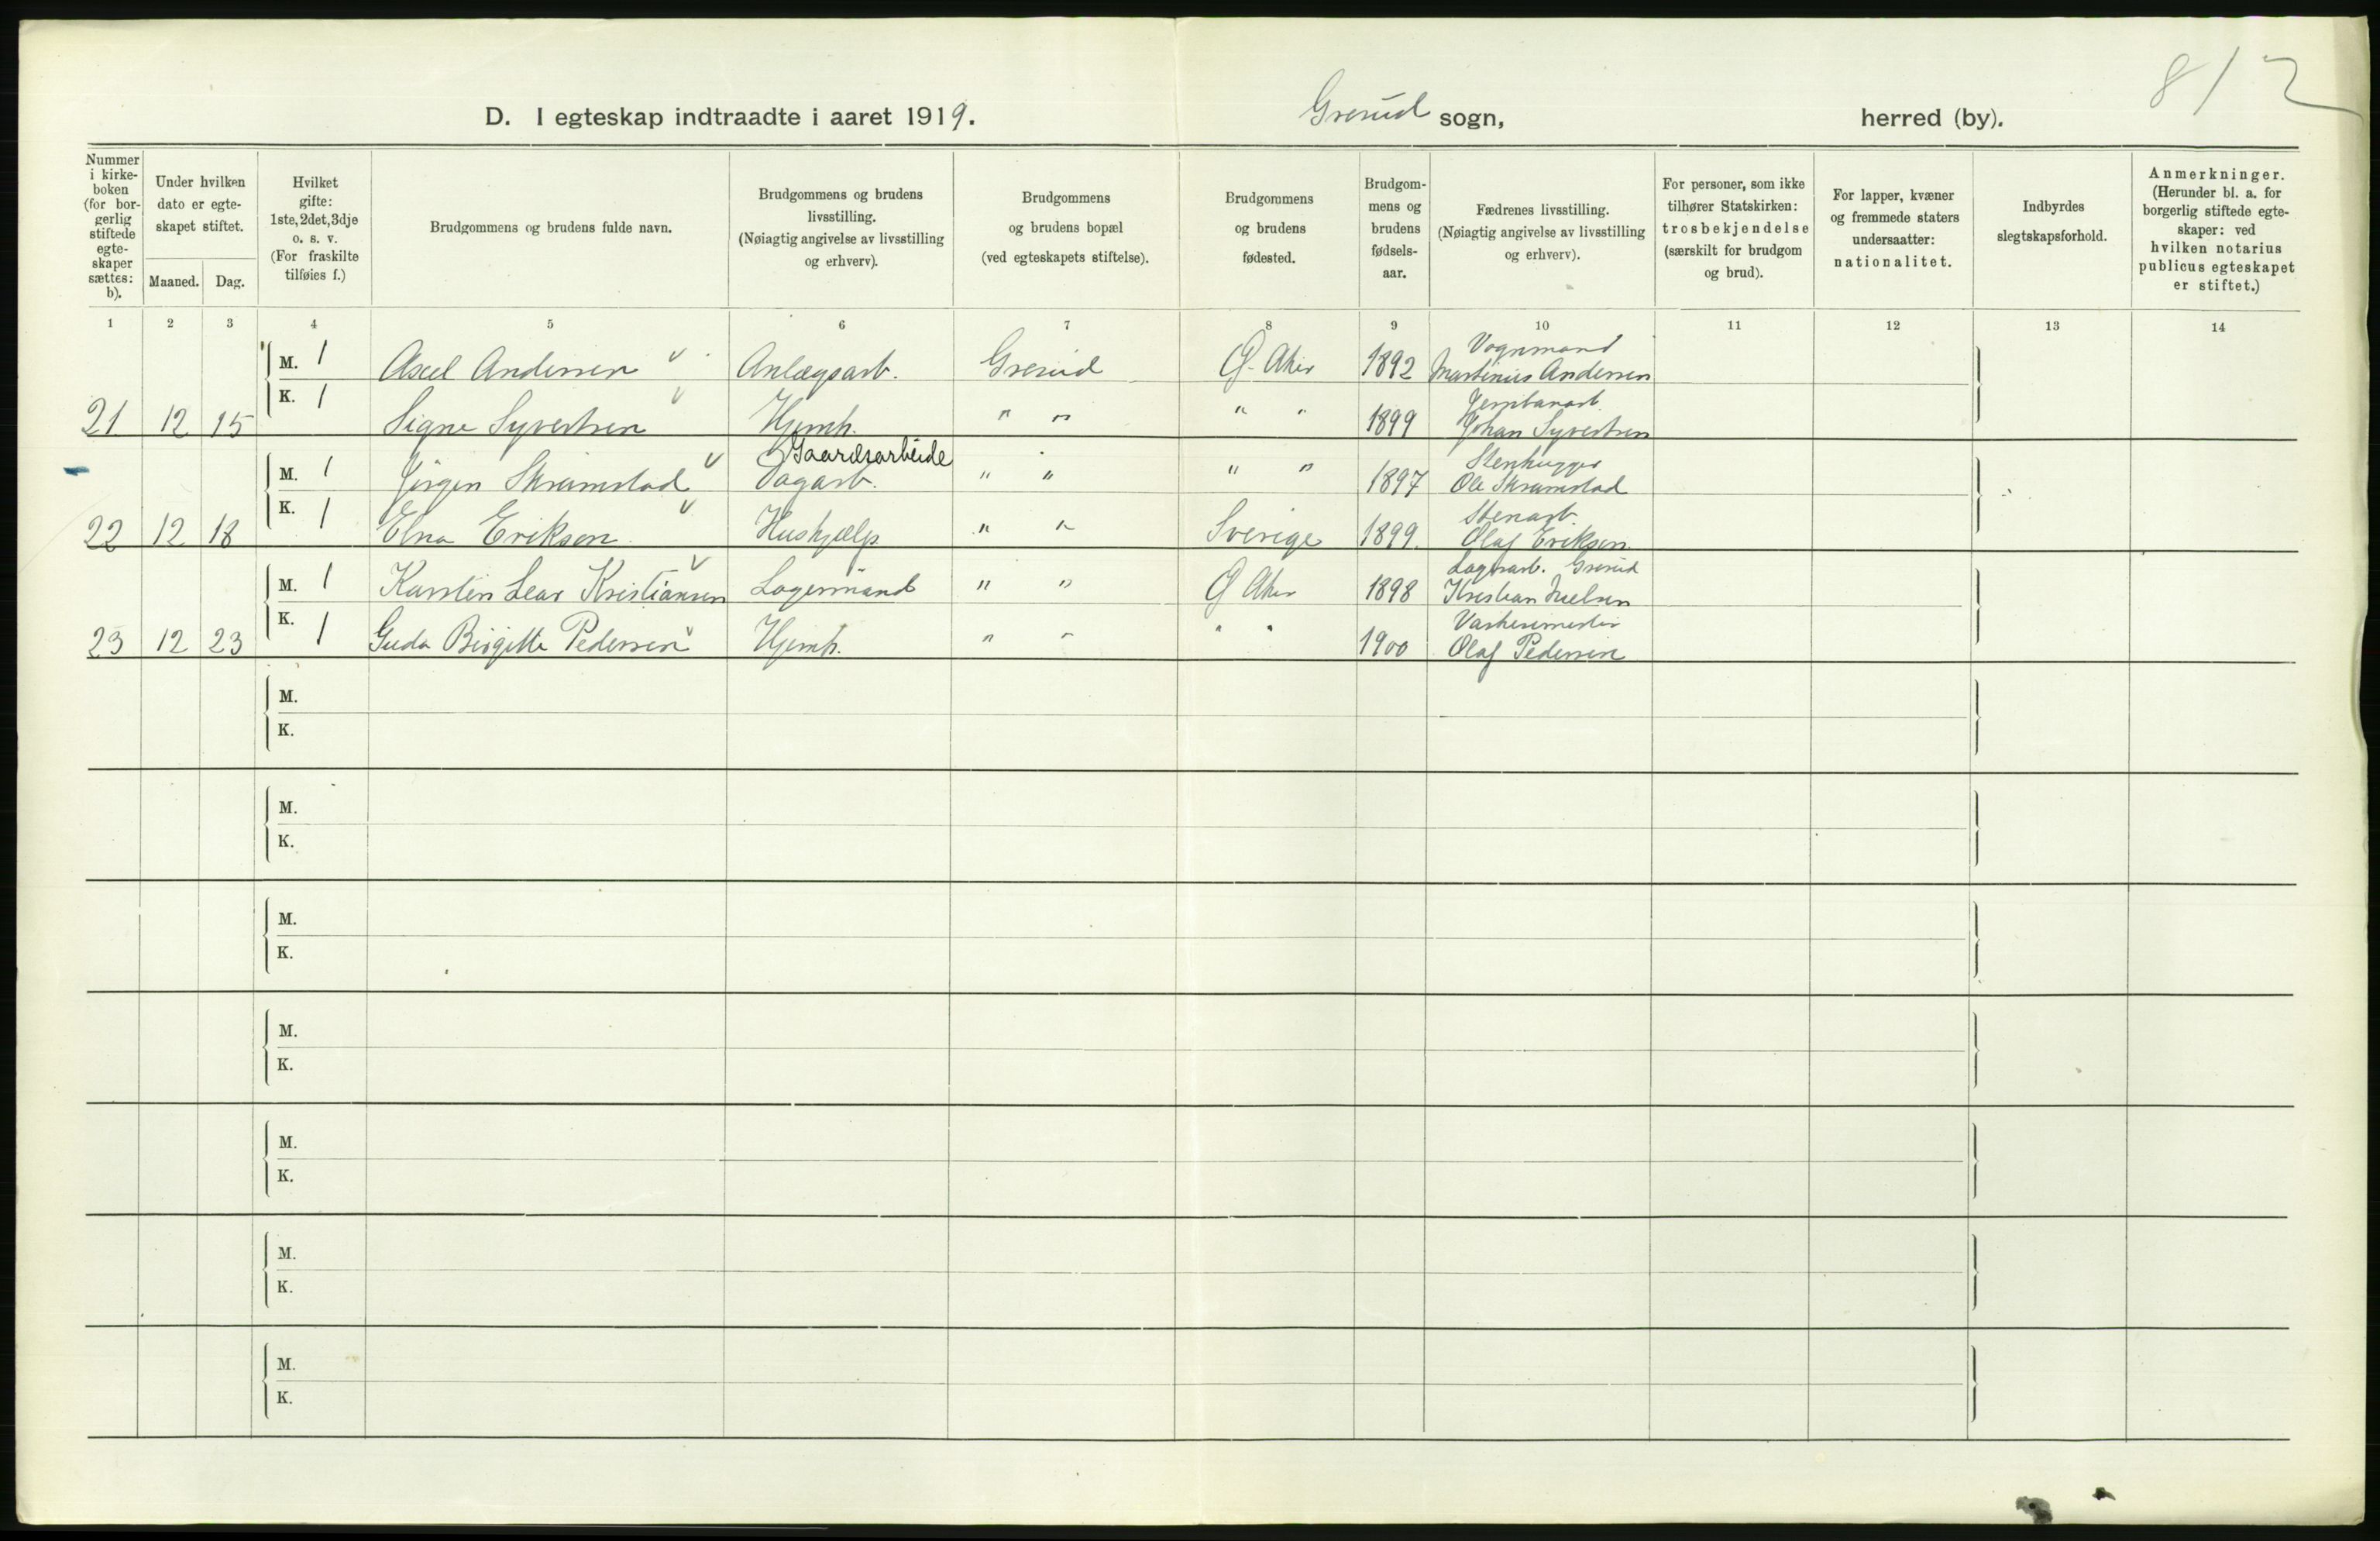 812
D. I egteskap indtraadte i aaret 1919. Grorud sogn, herred (by).
Nummer i kirkeboken (for borgerlig stiftede egteskaper sættes: b).
Under hvilken dato er egteskapet stiftet.
Maaned. Dag.
Hvilket gifte: 1ste, 2det, 3dje o. s. v. (For fraskilte tilføies f.)
Brudgommens og brudens fulde navn.
Brudgommens og brudens livsstilling. (Nøiagtig angivelse av livsstilling og erhverv).
Brudgommens og brudens bopæl (ved egteskapets stiftelse).
Brudgommens og brudens fødested.
Brudgommens og brudens fødselsaar.
Fædrenes livsstilling. (Nøiagtig angivelse av livsstilling og erhverv).
For personer, som ikke tilhører Statskirken: trosbekjendelse (særskilt for brudgom og brud).
For lapper, kvæner og fremmede staters undersaatter: nationalitet.
Indbyrdes slegtskapsforhold.
Anmerkninger. (Herunder bl. a. for borgerlig stiftede egteskaper: ved hvilken notarius publicus egteskapet er stiftet.)
1 2 3 4 5 6 7 8 9 10 11 12 13 14
Vognmand
M. 1 Axel Andersen Anlægsarb. Grorud Ø. Aker 1892 Martinius Andersen
Jernbanarb.
21 12 15 K. 1 Signe Syvertsen Hjemh. " " " " 1899 Johan Syvertsen
Gaardsarbeide Stenhugger
M. 1 Jörgen Skramstad Dagarb. " " " " 1897 Ole Skramstad
Stenarb.
22 12 18 K. 1 Elna Erikson Hushjælp " " Sverige 1899. Olaf Erikson
Lagerarb. Grorud
M. 1 Karsten Lear Kristiansen Lagermand " " Ø Aker 1898 Kristian Nielsen
23 12 23 K. 1 Guda Birgitte Pedersen Hjemh. " " " " 1900 Olaf Pedersen
M.
K.
M.
K.
M.
K.
M.
K.
M.
K.
M.
K.
M.
K.